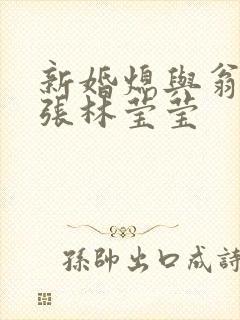 新婚熄與翁
張林莹莹
孫帥出口成詩